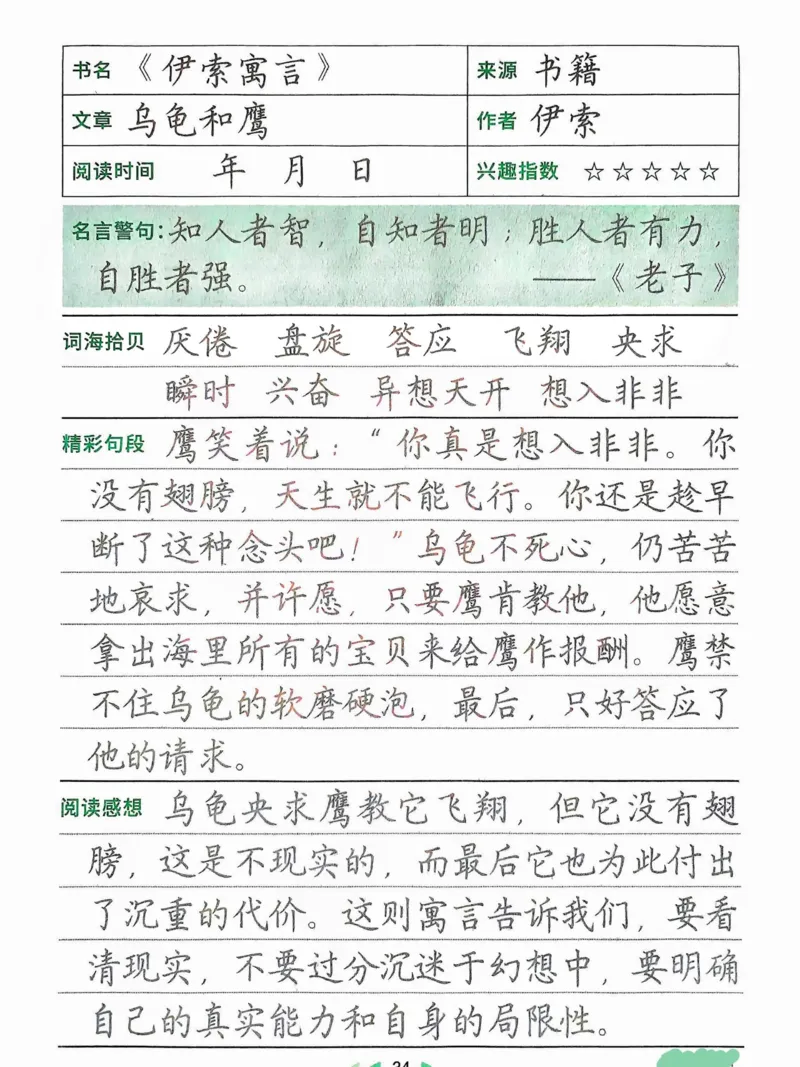 书名 《伊索寓言》 来源 书籍
文章 乌龟和鹰 作者 伊索
阅读时间 年 月 日 兴趣指数 ☆☆☆☆☆
名言警句:知人者智，自知者明；胜人者有力，
自胜者强。 ——《老子》
词海拾贝 厌倦 盘旋 答应 飞翔 央求
瞬时 兴奋 异想天开 想入非非
精彩句段 鹰笑着说：“你真是想入非非。你
没有翅膀，天生就不能飞行。你还是趁早
断了这种念头吧！”乌龟不死心，仍苦苦
地哀求，并许愿，只要鹰肯教他，他愿意
拿出海里所有的宝贝来给鹰作报酬。鹰禁
不住乌龟的软磨硬泡，最后，只好答应了
他的请求。
阅读感想 乌龟央求鹰教它飞翔，但它没有翅
膀，这是不现实的，而最后它也为此付出
了沉重的代价。这则寓言告诉我们，要看
清现实，不要过分沉迷于幻想中，要明确
自己的真实能力和自身的局限性。
24